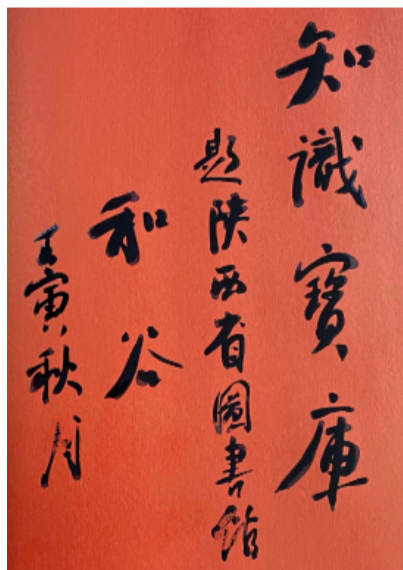 知識寶庫
題陝西省圖書館
和谷
壬寅秋月